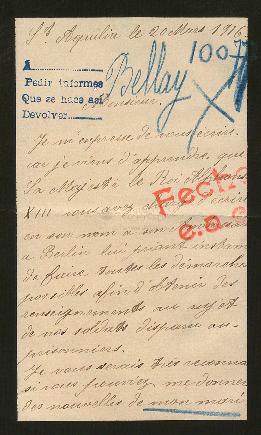 St Aquilin le 20 Mars 1916
1007
1
Pedir informes
Que se haga así
Devolver
Bellay
X
Monsieur.
Je m'empresse de vous écrire
car je viens d'apprendre, que
Sa Majesté le Roi Alphonse
XIII vous avez chargé d'écrire
en son nom à son
à Berlin lui priant instam
de faire toutes les démarches
possibles afin d'obtenir des
renseignements au sujet
de nos soldats disparus ou
prisonniers.
Fecha
e.a.
Je vous serais très reconnai
si vous pouviez, me donner
des nouvelles de mon mari